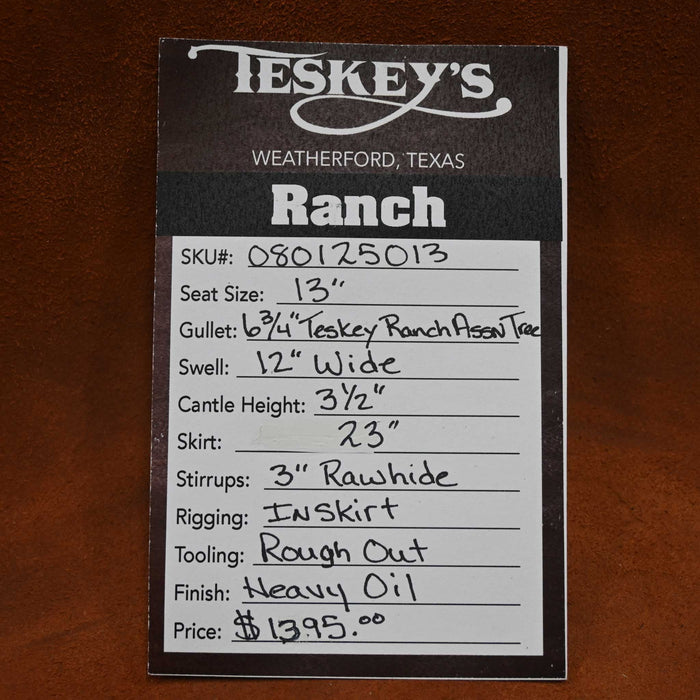 TESKEY'S
WEATHERFORD, TEXAS
Ranch
SKU#: 080125013
Seat Size: 13"
Gullet: 6 3/4" Teskey Ranch Assn Tree
Swell: 12" Wide
Cantle Height: 3 1/2"
Skirt: 23"
Stirrups: 3" Rawhide
Rigging: InSkirt
Tooling: Rough Out
Finish: Heavy Oil
Price: $1395.00